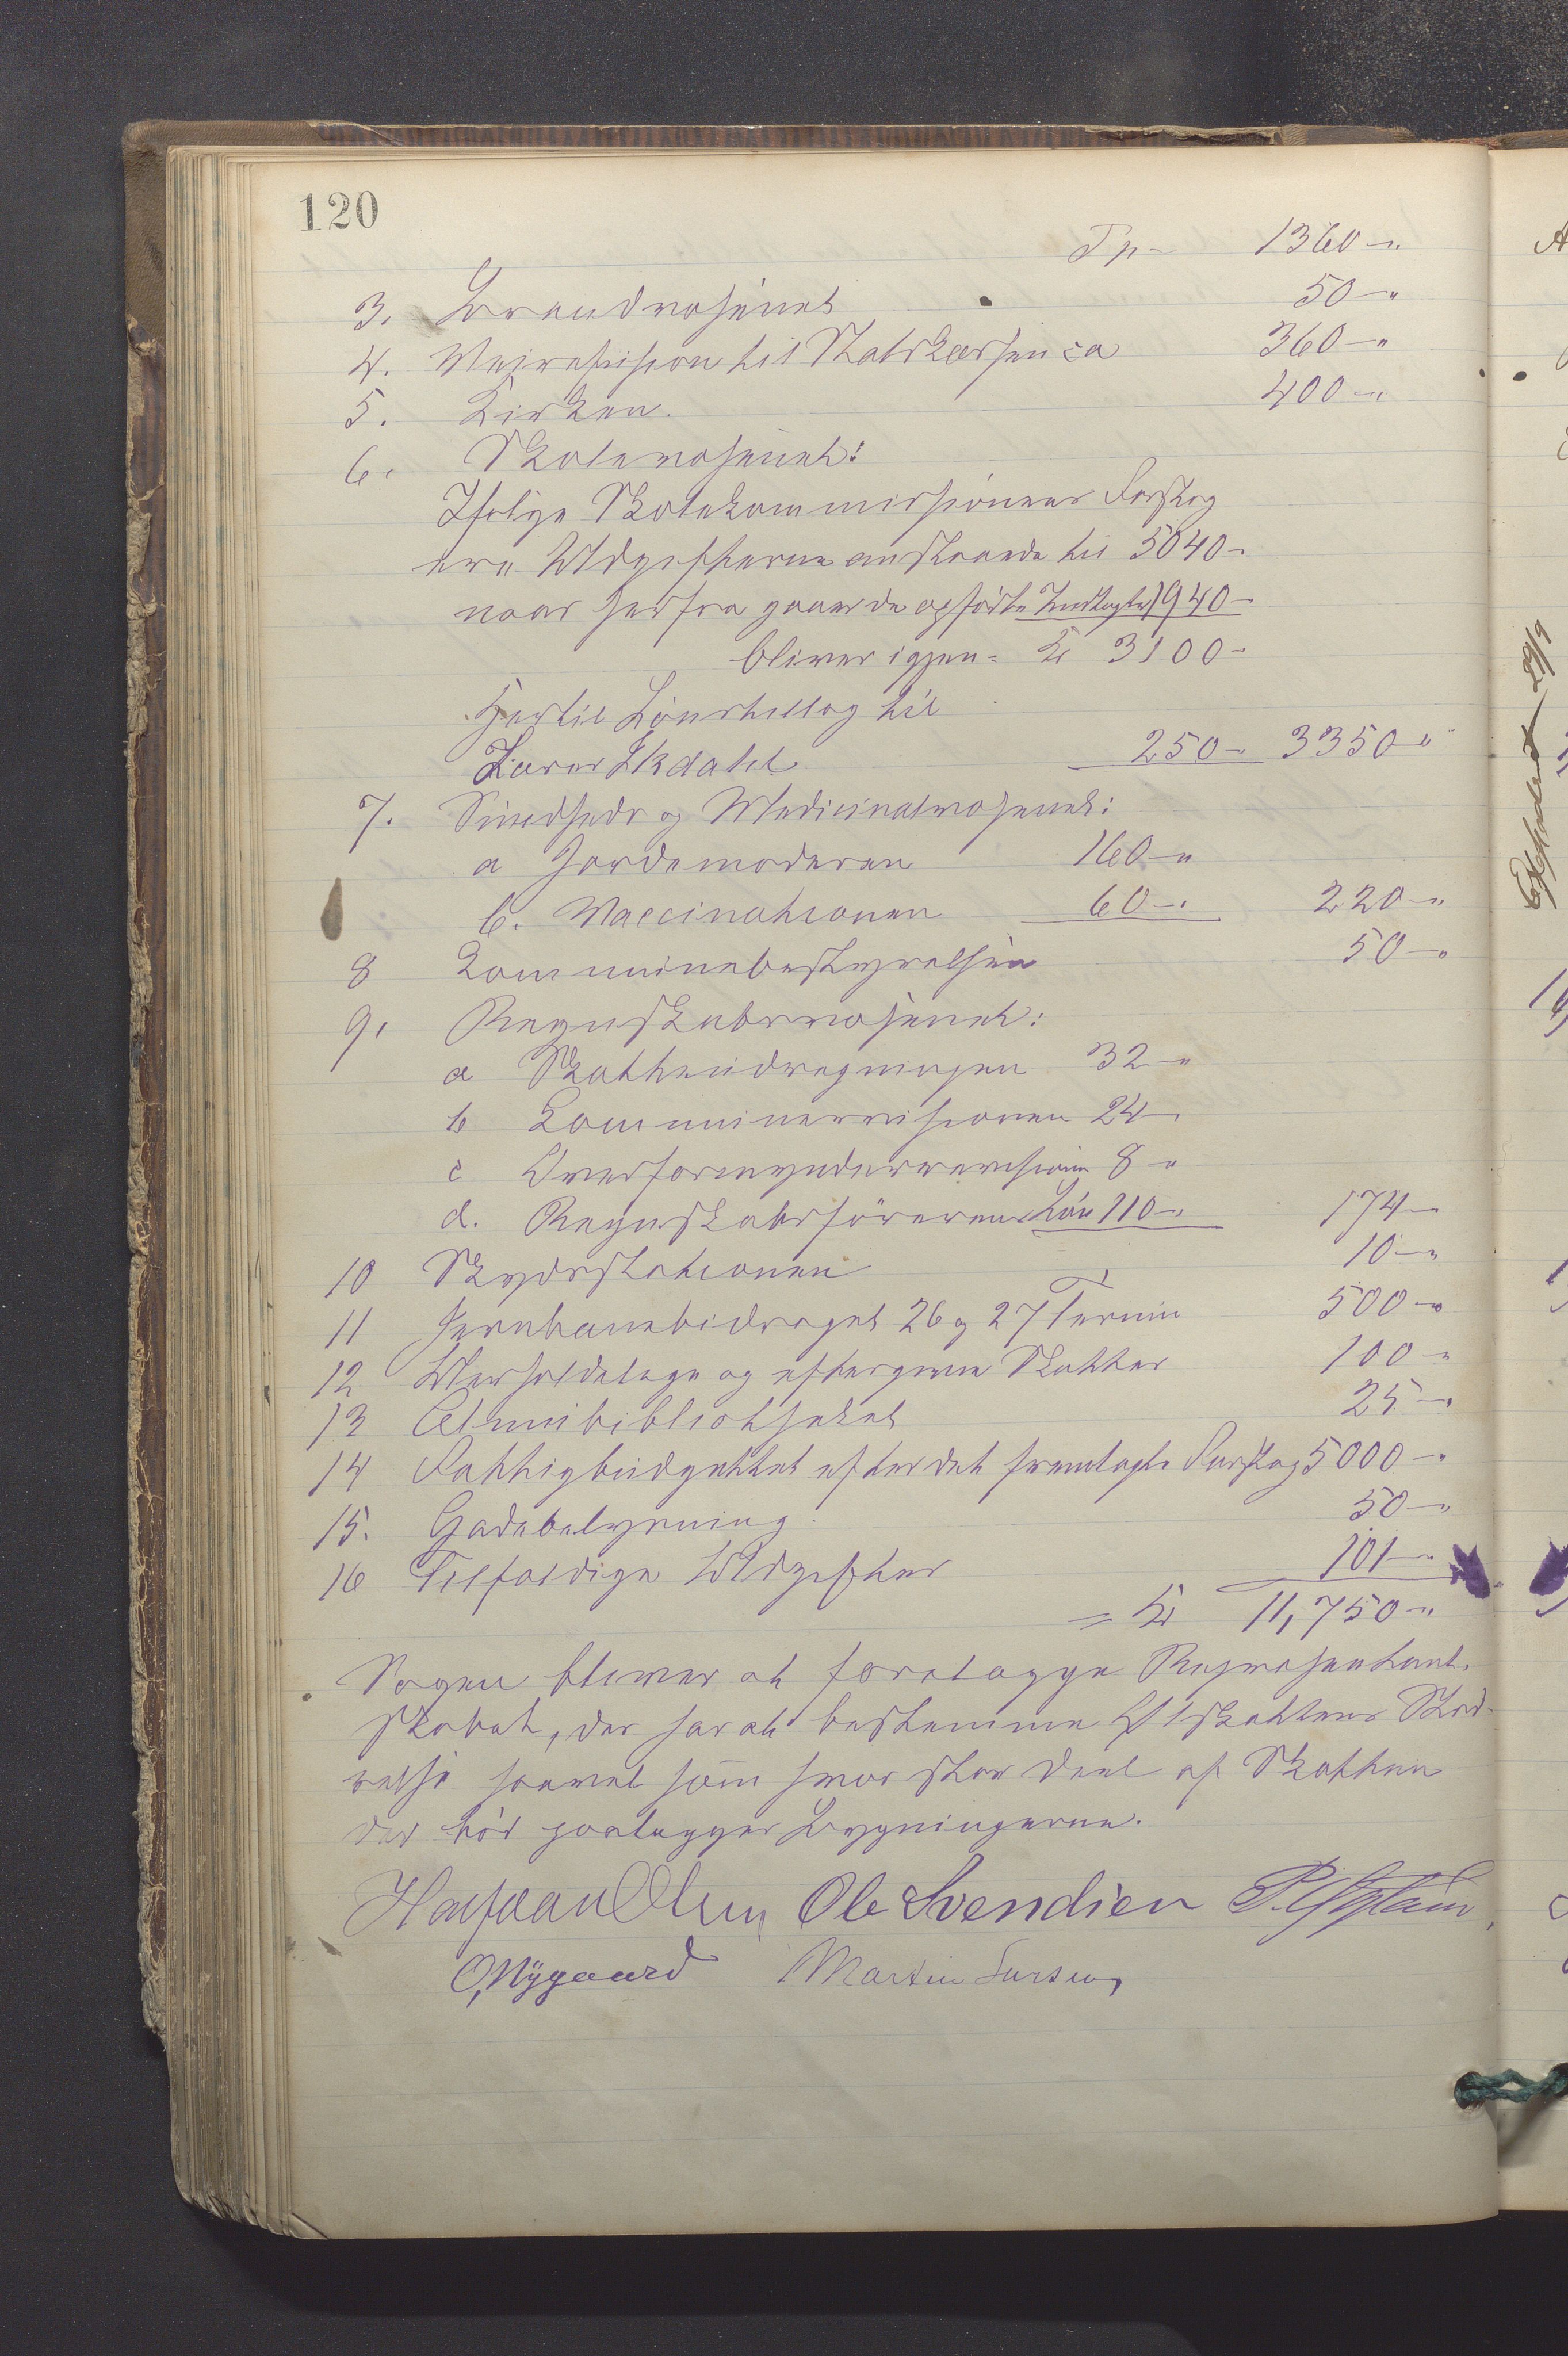 120
Tp - 1360 - "
3. Brandvæsenet 50 - "
4. Veirefusion til Statskassen ca 360 - "
5. Kirken. 400 - "
6. Skolevæsenet:
Ifølge Skolekommissionens Forslag
ere Udgifterne anslaaede til 5040 -
naar herfra gaar de opførte Indtægter 1940 -
bliver igjen = Kr 3100 -
Hertil Lønstillæg til
Lærer Ekdahl 250 - 3350 - "
7. Sundheds og Medicinalvæsenet:
a Jordemoderen 160 - "
b. Vaccinationen 60 - " 220 - "
8 Kommunebestyrelsen 50 - "
9. Regnskabsvæsenet:
a Skatteinddragningen 32 - "
b Kommunerevisionen 24 -
c Overformynderrevisionen 8 - "
d. Regnskabsførerens Løn 110 - " 174 -
10 Skydsstationen 10 - "
11 Jernbanebidraget 26 og 27 Termin 500 - "
12 Uerholdelige og eftergivne Skatter 100 - "
13 Almuebibliotheket 25 - "
14 Fattigbudgettet efter det fremlagte Forslag 5000 - "
15. Gadebelysning 50 - "
16 Tilfældige Udgifter 101 - "
= Kr 11,750 - "
Sagen bliver at forelægge Repræsentant-
skabet, der har at bestemme Skattens Stør-
relse saavel som hvor stor Deel af Skatten
der bør paalægges Bygningerne.
Halfdan Olsen Ole Svendsen
O, Nygaard Martin Larsen,
Exped 29/9